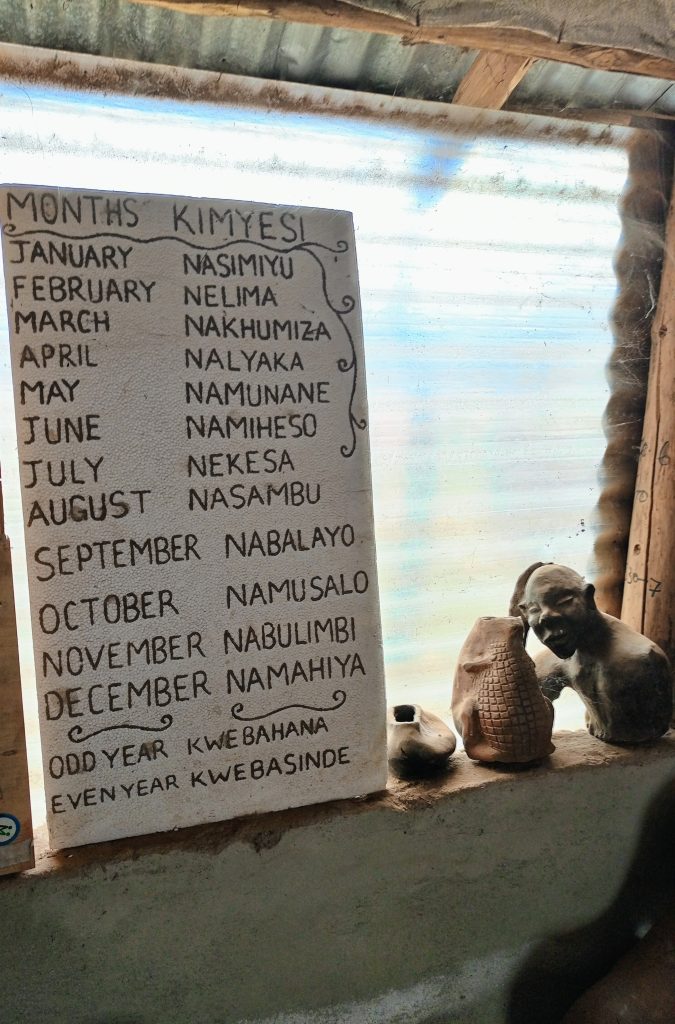 MONTHS KIMYESI
JANUARY NASIMIYU
FEBRUARY NELIMA
MARCH NAKHUMIZA
APRIL NALYAKA
MAY NAMUNANE
JUNE NAMIHESO
JULY NEKESA
AUGUST NASAMBU
SEPTEMBER NABALAYO
OCTOBER NAMUSALO
NOVEMBER NABULIMBI
DECEMBER NAMAHIYA
ODD YEAR KWEBAHANA
EVEN YEAR KWEBASINDE